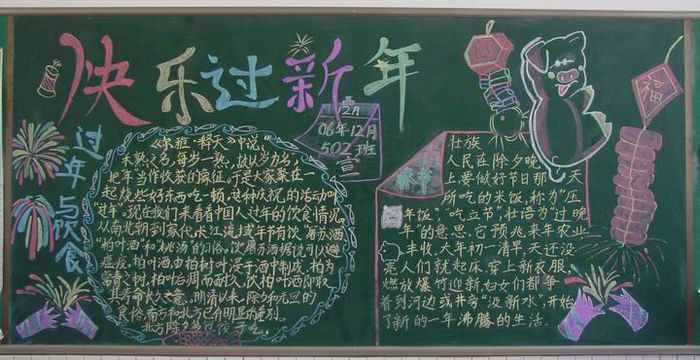 快乐过新年
2月
06年12月
502班
宣
过年与饮食
《尔雅·释天》中说,
禾熟之名,每岁一熟,故以岁为名,
把年当作收获的象征,于是大家聚在一
起烧些好东西吃一顿,这种庆祝的活动叫
"过年"。现在我们来看看中国人过年的饮食情况。
从南北朝到宋代,长江流域年节有饮"屠苏酒"
"柏叶酒"和"桃汤"的日俗,饮屠苏酒据说可以避
瘟疫,柏叶酒由柏树叶浸于酒中制成,柏为
常青之树,柏叶后凋而耐久,饮柏叶酒即取
其寿命长久之意。明清以来,除夕和元旦的
食俗南方和北方已有明显的差别。
北方除夕
吃。
壮族
人民在除夕晚
上要做好节日那一天
所吃的米饭,称为"压
年饭","吃立节"壮语为"过晚
年"的意思,它预兆来年农业
丰收,大年初一清早天还没
亮人们就起床,穿上新衣服,
燃放爆竹迎新妇女们都争
着到河边或井旁"汲新水",开始
了新的一年沸腾的生活。
福